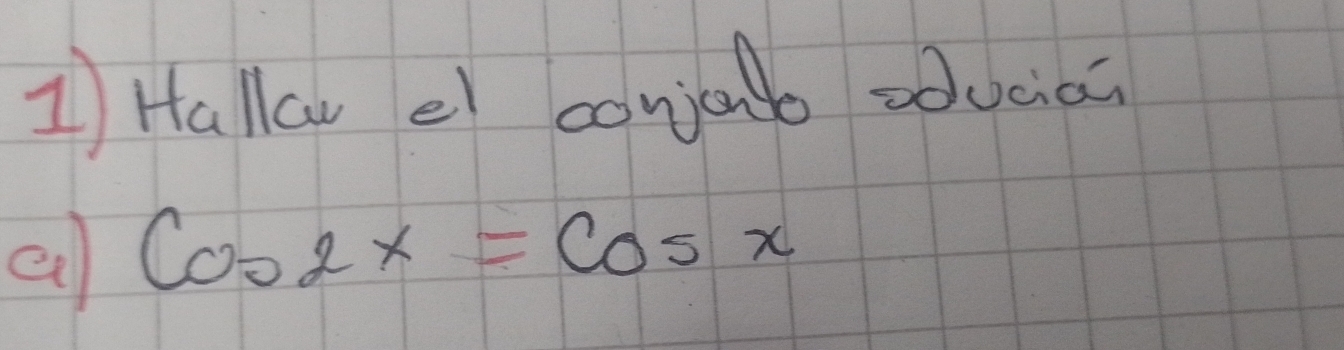 1) Hallar el conjunto solución
a) Cos 2x = Cos x